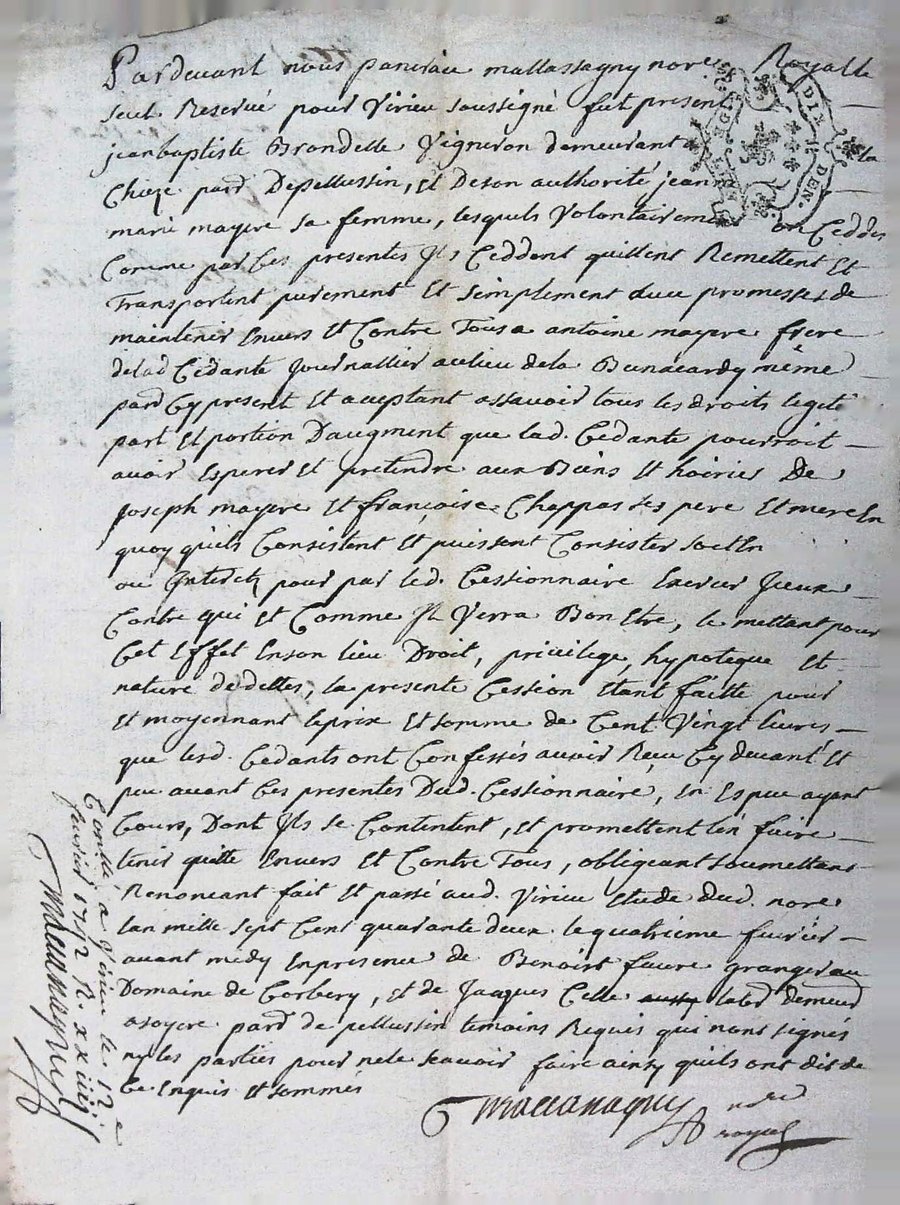 Pardevant nous pancrace mallassagny nore Royalle
seul Reservé pour Virieu soussigné fut present
jeanbaptiste Brondelle Vigneron demeurant a la
Chieze pard Depellussin, Et Deson authorité jean
marie mayere sa femme, lesquels Volontairement on Ceddés
Comme par Ces presentes Ils Ceddent quittent Remettent Et
Transportent purement Et simplement avec promesses de
maintenir Envers Et Contre Tous a antoine mayere frere
delad Cedante Journallier aulieu dela Bunacardy même
pard Cy present Et acceptant assavoir tous les droits legité
part Et portion Daugment que lad. Cedante pourroit
avoir Esperer Et pretendre aux Biens Et hoiries De
Joseph mayere Et francoise Chappas ses pere Et mere En
quoy quils Consistent Et puissent Consister soit En
ou Interets, pour par led. Cessionnaire Exercer Iceux
Contre qui Et Comme Il Verra Bon Etre, le mettant pour
Cet Effet Enson lieu Droit, privilege, hypoteque Et
nature de dettes, la presente Cession Etant faitte pour
Et moyennant leprix Et somme de Cent Vingt livres
que lesd. Cedants ont Confessés avoir Reçu Cy devant Et
peu avant Ces presentes Dud. Cessionnaire, En Espece ayant
Cours, Dont Ils se Contentent, Et promettent len faire
tenir quitte Envers Et Contre Tous, obligeant soumettant
Renoncant fait Et passé aud. Virieu Etude dud. nore
lan mille sept Cent quarante deux le quatrieme fevrier
avant midy Enpresence de Benoist faure granger au
Domaine de Corbery, et de Jacques Celle labr demeur
asoyere pard de pellussin temoins Requis qui nont signés
ny les parties pour nele sçavoir faire ainsy quils ont dit de
Ce Enquis Et sommés
nore
royal
Conllé a Virieu le 12e
fevrier 1742 R. xxiiijs